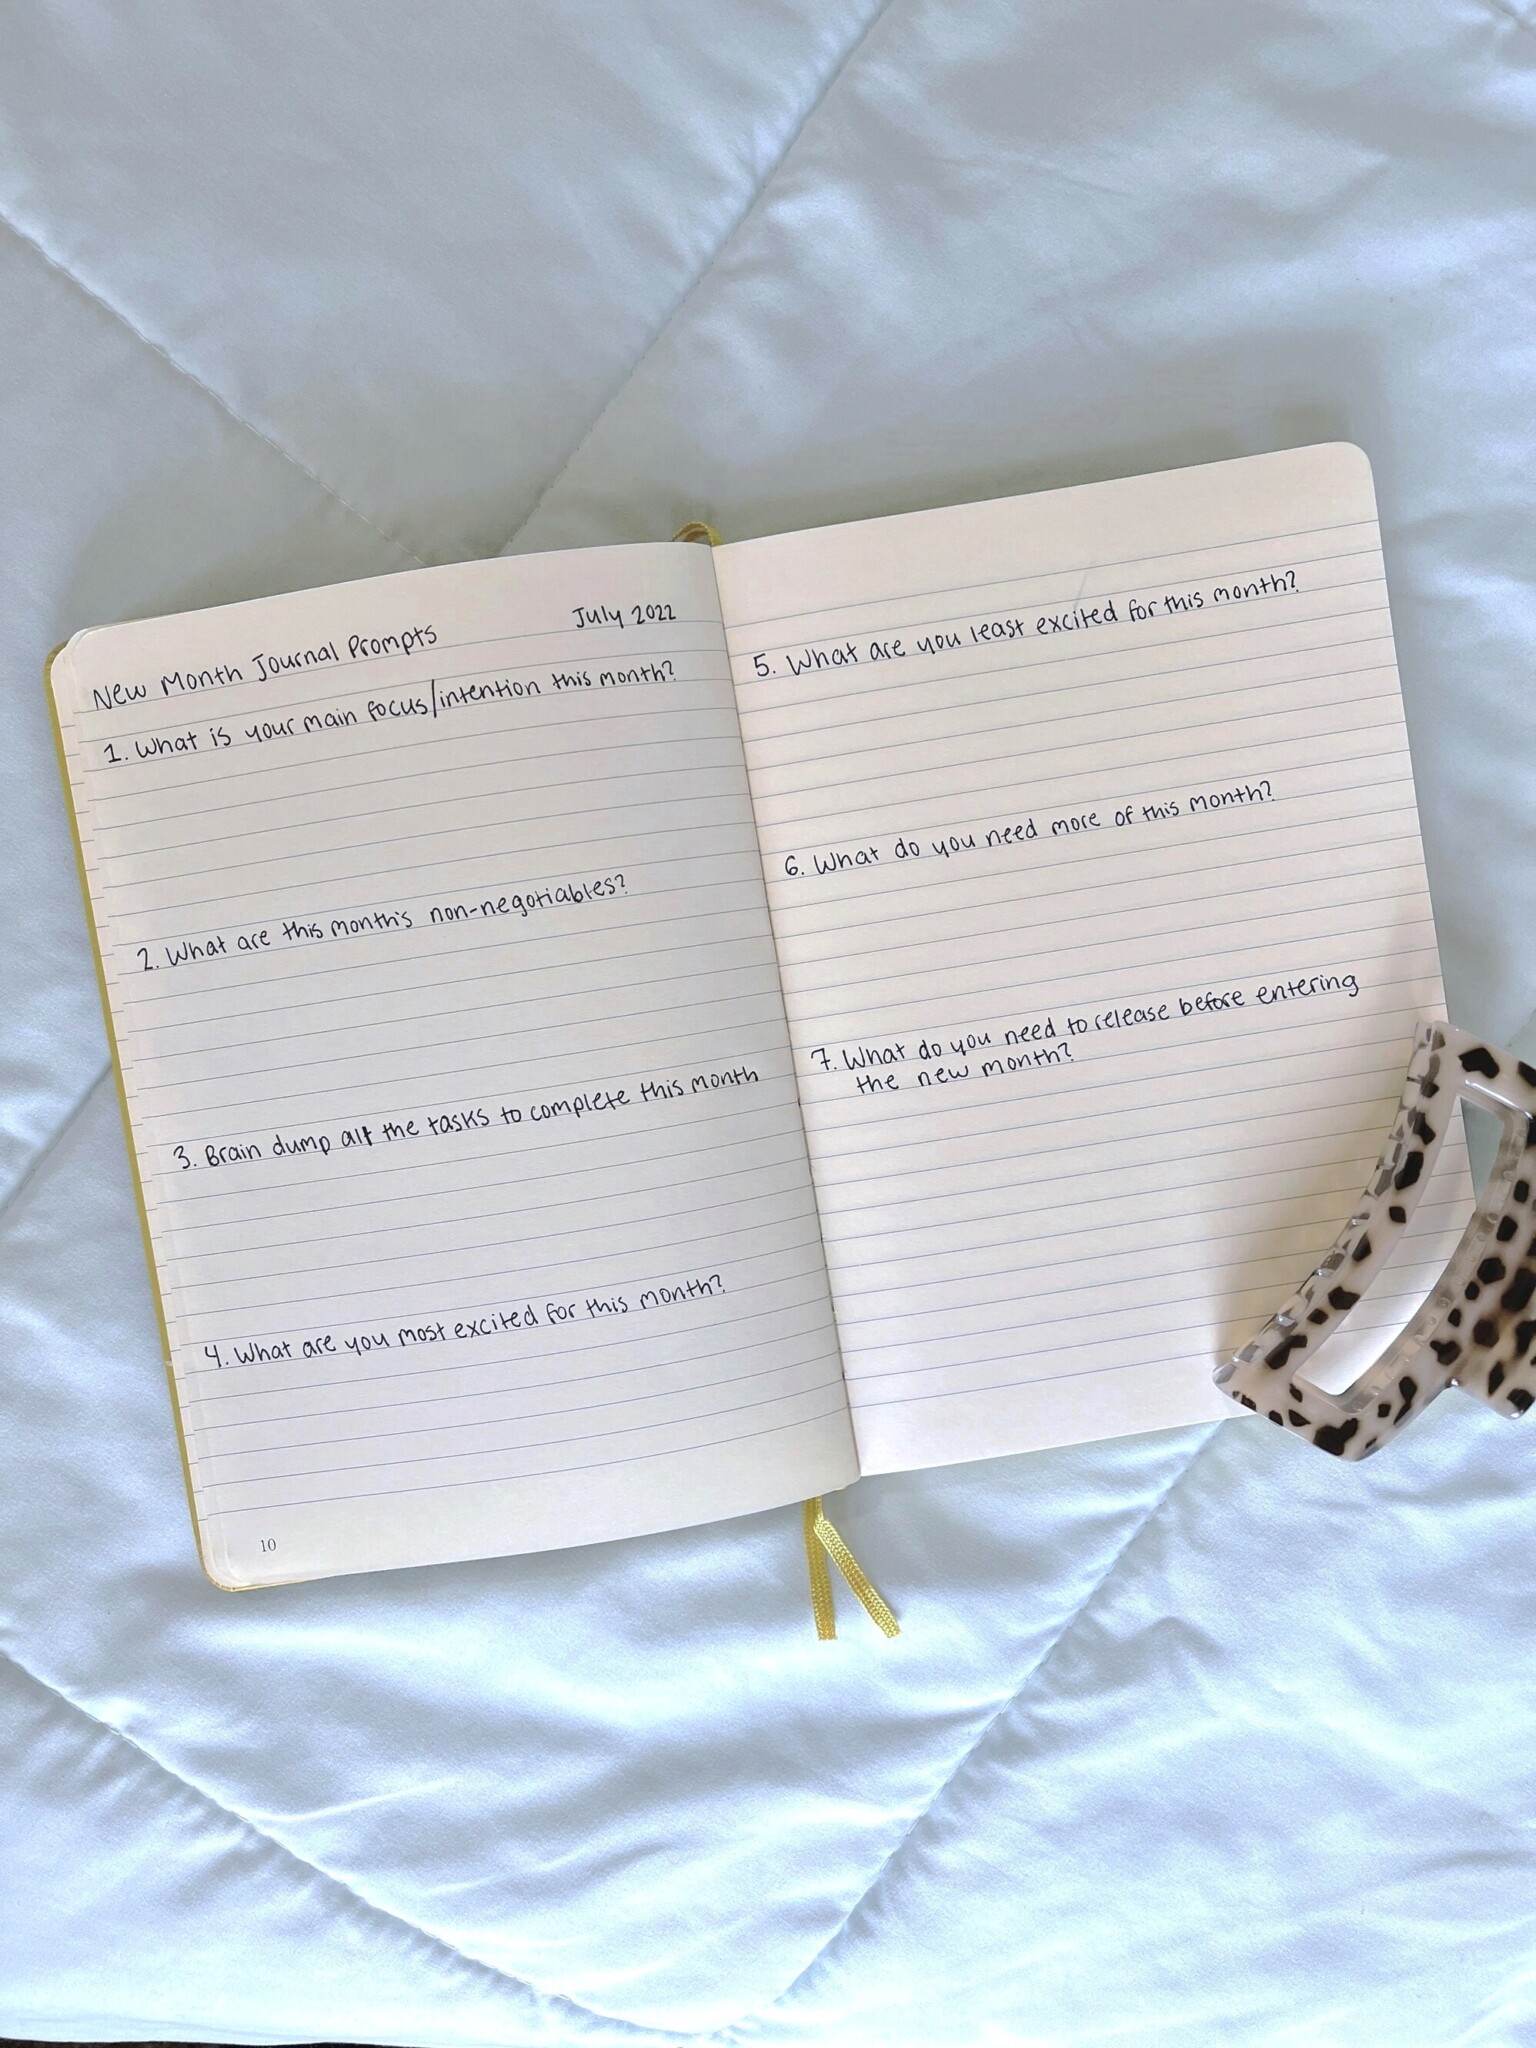 New Month Journal Prompts
July 2022
1. What is your main focus/intention this month?
2. What are this month's non-negotiables?
3. Brain dump all the tasks to complete this month
4. What are you most excited for this month?
10
5. What are you least excited for this month?
6. What do you need more of this month?
7. What do you need to release before entering
the new month?